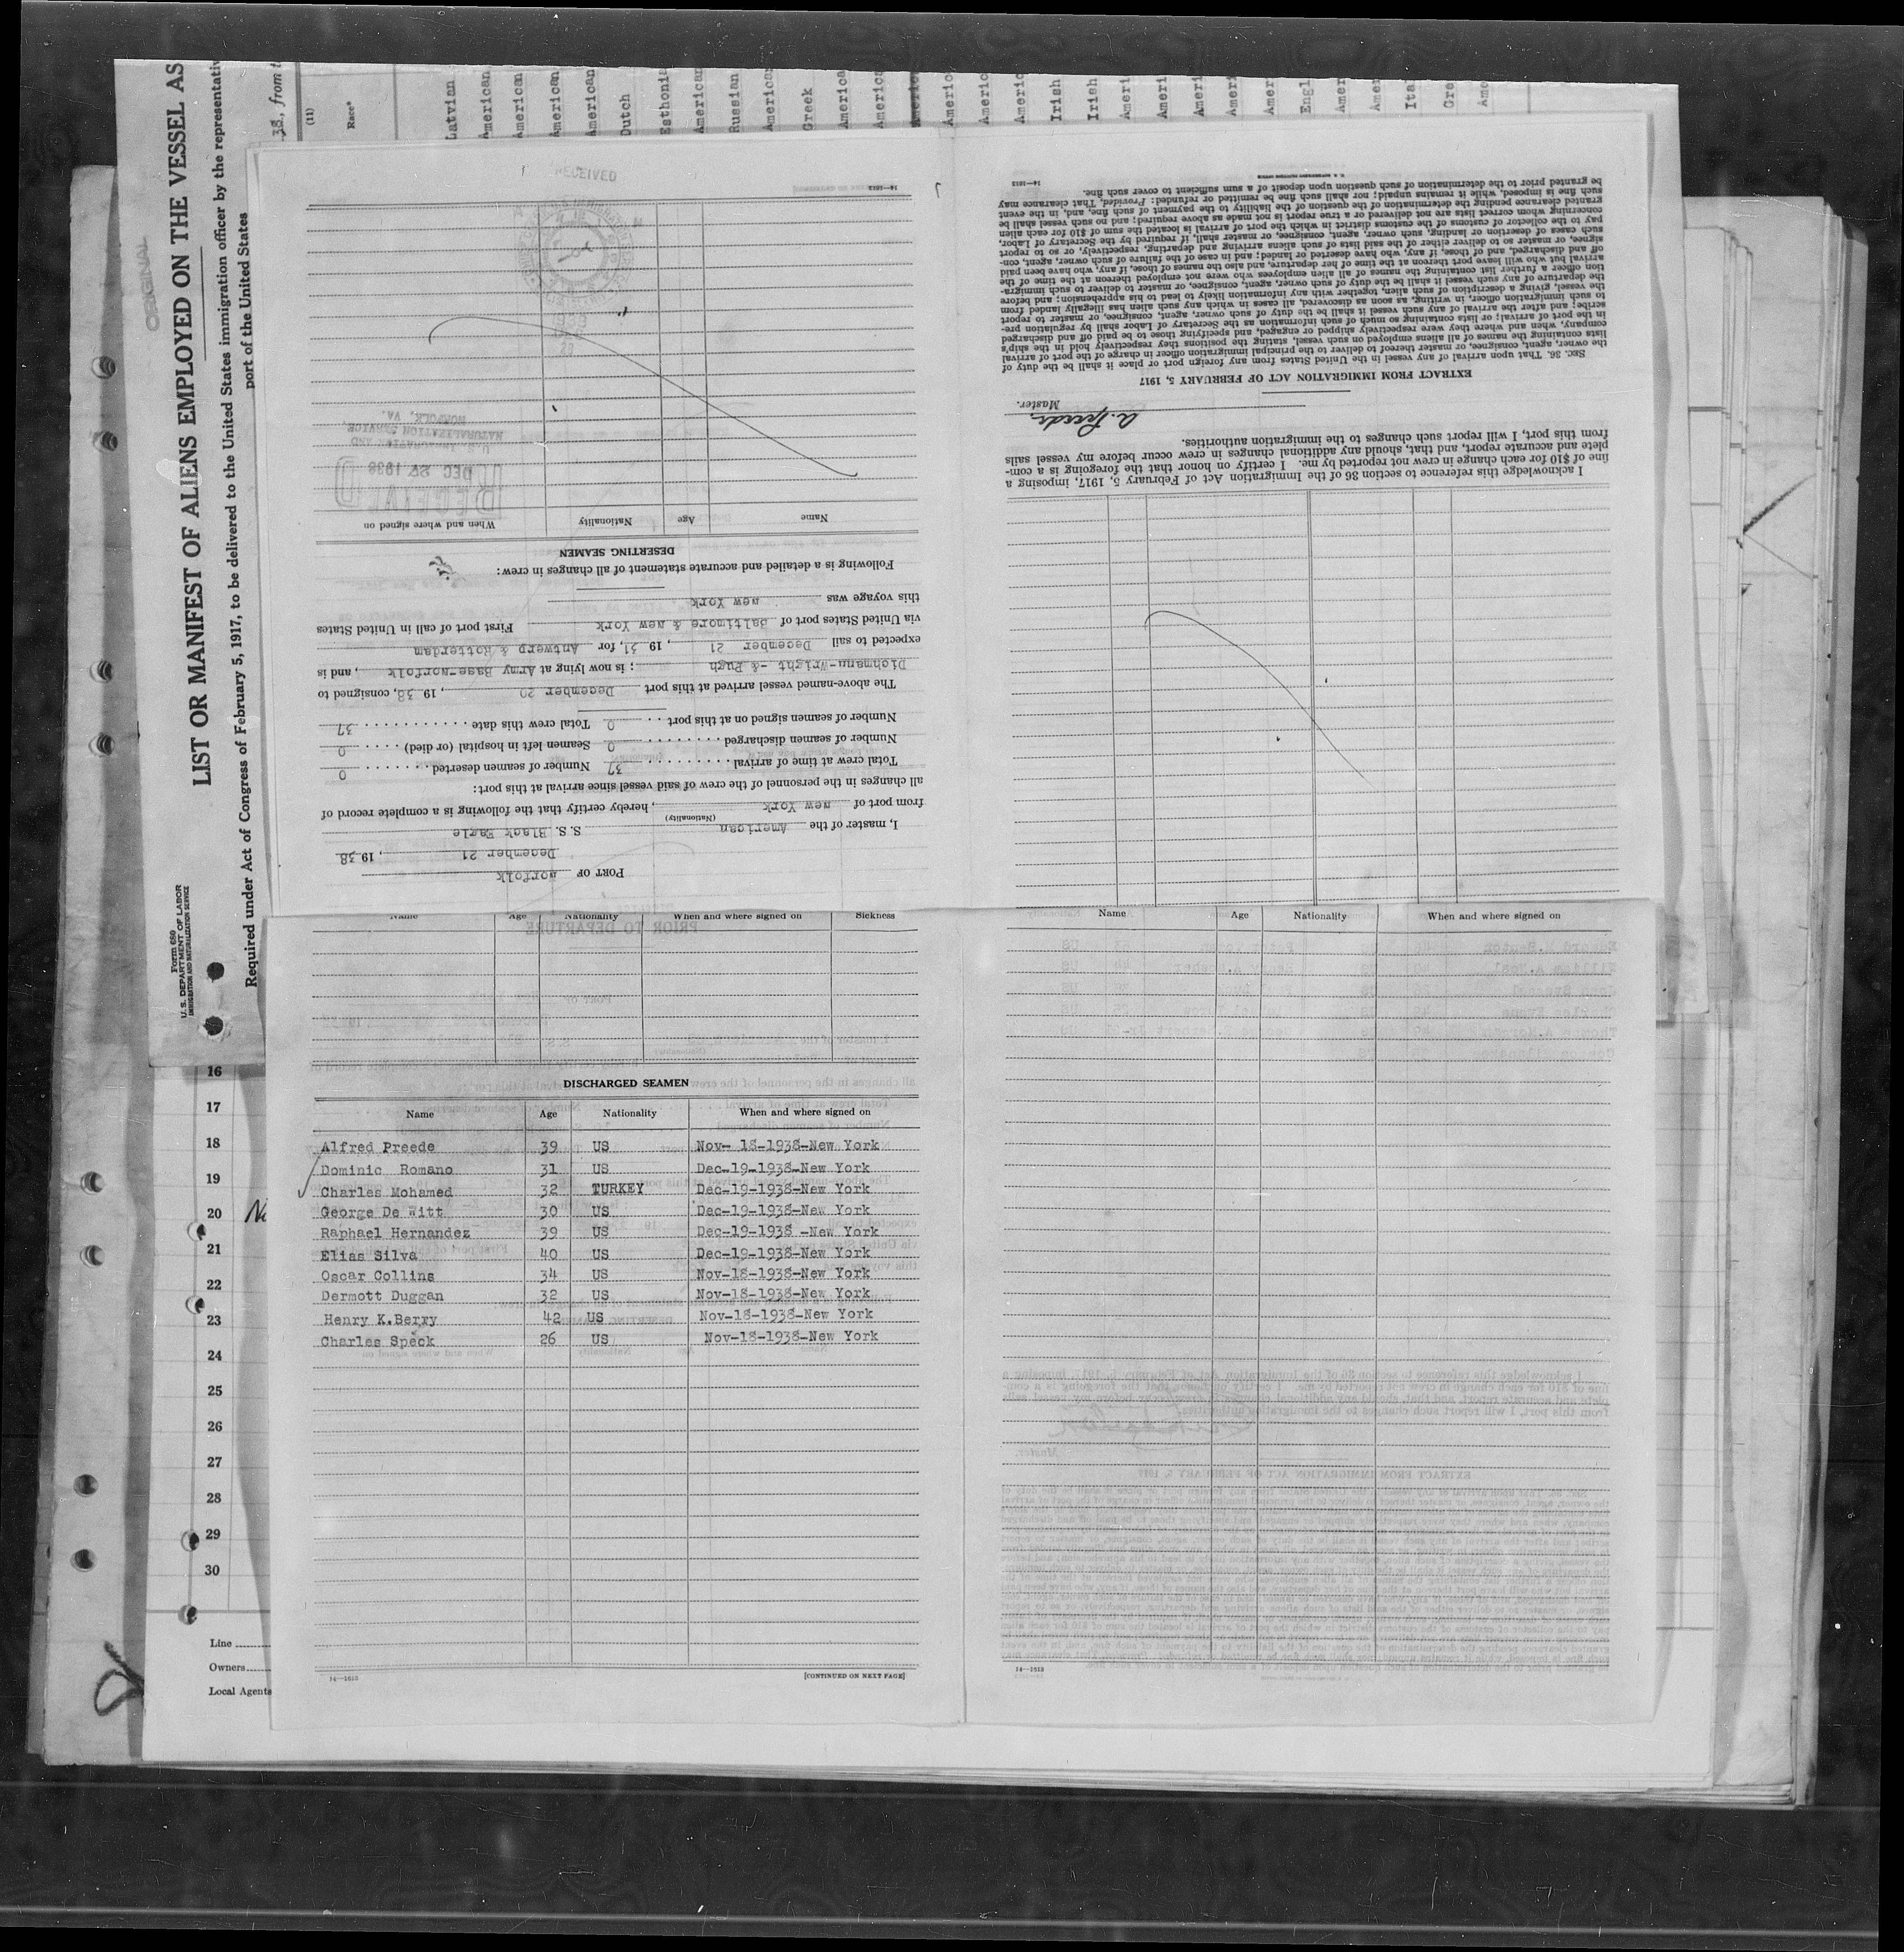 ORIGINAL
Form 680
U. S. DEPARTMENT OF LABOR
IMMIGRATION AND NATURALIZATION SERVICE
LIST OR MANIFEST OF ALIENS EMPLOYED ON THE VESSEL AS
Required under Act of Congress of February 5, 1917, to be delivered to the United States immigration officer by the representativ
port of the United States
38, from
(11)
Race*
Latvian
American
American
American
American
Dutch
Esthonia
American
Russian
American
Greek
America
America
Americ
Americ
Americ
Americ
Irish
Irish
Ameri
Ameri
Ameri
Ameri
Amer
Engl
Amer
Amer
Ital
Gre
Ame
RECEIVED
PORT OF Norfolk
December 21, 19 38
I, master of the American S. S. Black Eagle
(Nationality)
from port of New York, hereby certify that the following is a complete record of
all changes in the personnel of the crew of said vessel since arrival at this port:
Total crew at time of arrival 37 Number of seamen deserted 0
Number of seamen discharged 0 Seamen left in hospital (or died) 0
Number of seamen signed on at this port 0 Total crew this date 37
The above-named vessel arrived at this port December 20, 19 38, consigned to
Dichmann-Wright -& Pugh ; is now lying at Army Base-Norfolk, and is
expected to sail December 21, 19 31, for Antwerp & Rotterdam
via United States port of Baltimore & New York First port of call in United States
this voyage was New York.
Following is a detailed and accurate statement of all changes in crew:
DESERTING SEAMEN
Name Age Nationality When and where signed on
RECEIVED
DEC 27 1938
U.S. IMMIGRATION AND
NATURALIZATION SERVICE,
NORFOLK, VA.
14—1613
I acknowledge this reference to section 36 of the Immigration Act of February 5, 1917, imposing a
fine of $10 for each change in crew not reported by me. I certify on honor that the foregoing is a com-
plete and accurate report, and that, should any additional changes in crew occur before my vessel sails
from this port, I will report such changes to the immigration authorities.
A. Preede
Master.
EXTRACT FROM IMMIGRATION ACT OF FEBRUARY 5, 1917
SEC. 36. That upon arrival of any vessel in the United States from any foreign port or place it shall be the duty of
the owner, agent, consignee, or master thereof to deliver to the principal immigration officer in charge of the port of arrival
lists containing the names of all aliens employed on such vessel, stating the positions they respectively hold in the ship's
company, when and where they were respectively shipped or engaged, and specifying those to be paid off and discharged
in the port of arrival; or lists containing so much of such information as the Secretary of Labor shall by regulation pre-
scribe; and after the arrival of any such vessel it shall be the duty of such owner, agent, consignee, or master to report
to such immigration officer, in writing, as soon as discovered, all cases in which any such alien has illegally landed from
the vessel, giving a description of such alien, together with any information likely to lead to his apprehension; and before
the departure of any such vessel it shall be the duty of such owner, agent, consignee, or master to deliver to such immigra-
tion officer a further list containing the names of all alien employees who were not employed thereon at the time of the
arrival but who will leave port thereon at the time of her departure, and also the names of those, if any, who have been paid
off and discharged, and of those, if any, who have deserted or landed; and in case of the failure of such owner, agent, con-
signee, or master so to deliver either of the said lists of such aliens arriving and departing, respectively, or so to report
such cases of desertion or landing, such owner, agent, consignee, or master, shall, if required by the Secretary of Labor,
pay to the collector of customs of the customs district in which the port of arrival is located the sum of $10 for each alien
concerning whom correct lists are not delivered or a true report is not made as above required; and no such vessel shall be
granted clearance pending the determination of the question of the liability to the payment of such fine, and, in the event
such fine is imposed, while it remains unpaid; nor shall such fine be remitted or refunded: Provided, That clearance may
be granted prior to the determination of such question upon deposit of a sum sufficient to cover such fine.
14—1613
Name Age Nationality When and where signed on Sickness
DISCHARGED SEAMEN
Name Age Nationality When and where signed on
Alfred Preede 39 US Nov- 18-1938-New York
Dominic Romano 31 US Dec-19-1938-New York
Charles Mohamed 32 TURKEY Dec-19-1938-New York
George De Witt 30 US Dec-19-1938-New York
Raphael Hernandez 39 US Dec-19-1938 -New York
Elias Silva 40 US Dec-19-1938-New York
Oscar Collins 34 US Nov-18-1938-New York
Dermott Duggan 32 US Nov-18-1938-New York
Henry K.Berry 42 US Nov-18-1938-New York
Charles Speck 26 US Nov-18-1938-New York
14—1613 [CONTINUED ON NEXT PAGE]
Name Age Nationality When and where signed on
14—1613
16
17
18
19
20
21
22
23
24
25
26
27
28
29
30
Line
Owners
Local Agents